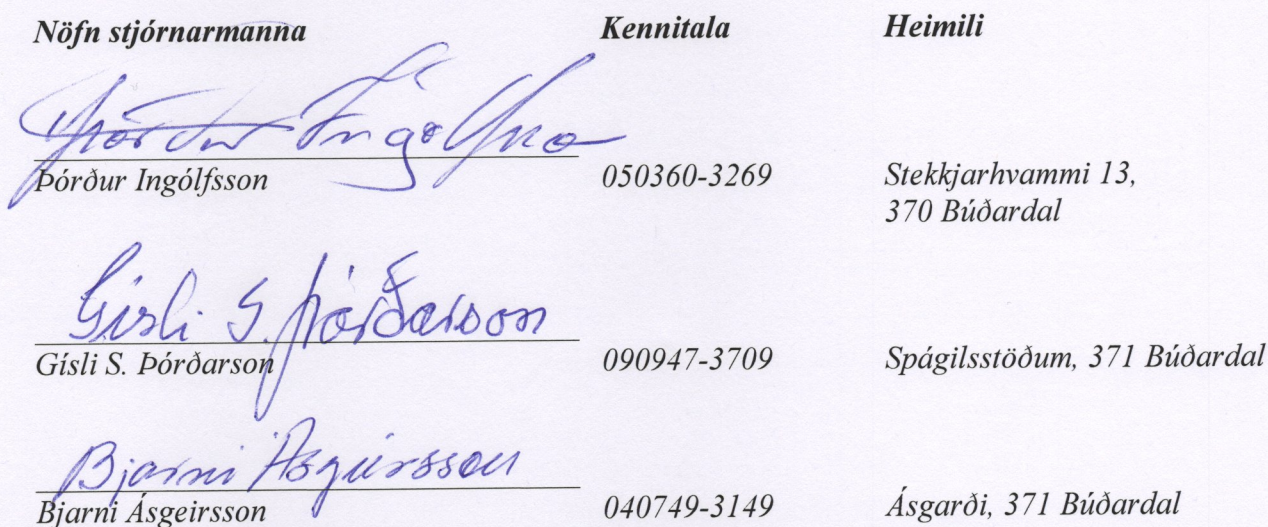 Nöfn stjórnarmanna Kennitala Heimili
Þórður Ingólfsson
Þórður Ingólfsson 050360-3269 Stekkjarhvammi 13,
370 Búðardal
Gísli S. Þórðarson
Gísli S. Þórðarson 090947-3709 Spágilsstöðum, 371 Búðardal
Bjarni Ásgeirsson
Bjarni Ásgeirsson 040749-3149 Ásgarði, 371 Búðardal